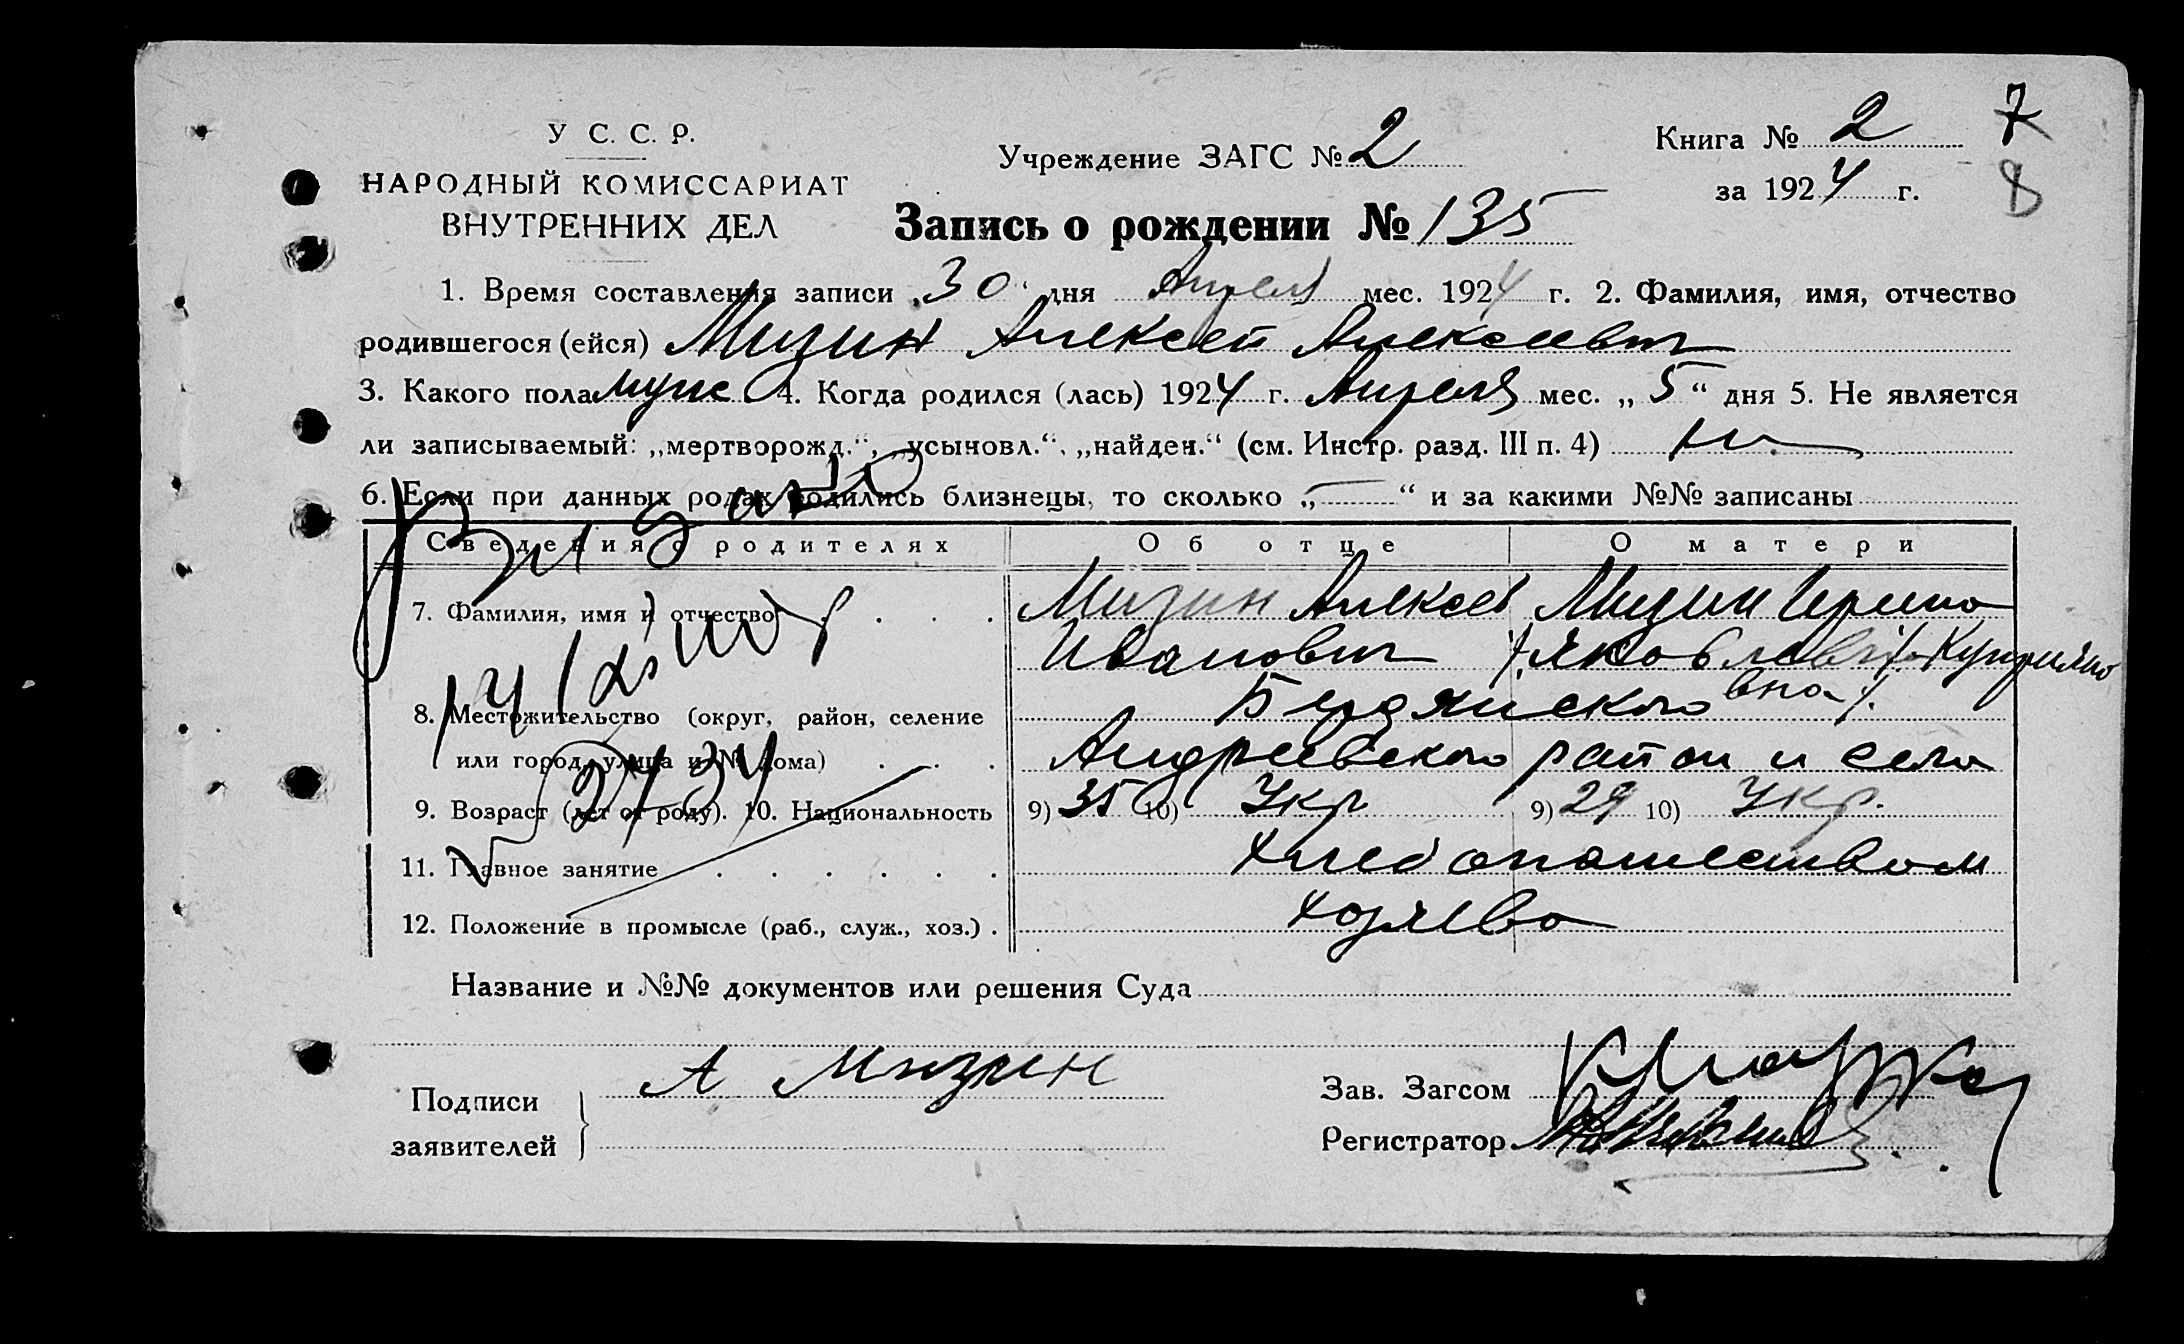 У С. С. Р.
НАРОДНЫЙ КОМИССАРИАТ
ВНУТРЕННИХ ДЕЛ
Учреждение ЗАГС № 2
Книга № 2
за 1924 г.
7
8
Запись о рождении № 135
1. Время составления записи „30“ дня Апреля мес. 1924 г. 2. Фамилия, имя, отчество
родившегося (ейся) Мизин Алексей Алексеевич
3. Какого пола муж 4. Когда родился (лась) 1924 г. Апреля мес. „5“ дня 5. Не является
ли записываемый: „мертворожд.“, „усыновл.“, „найден.“ (см. Инстр. разд. III п. 4)
6. Если при данных родах родились близнецы, то сколько „—“ и за какими №№ записаны
Сведения о родителях Об отце О матери
7. Фамилия, имя и отчество Мизин Алексей Мизин Ирина
Иванович Яковлев Куприяно
вна
8. Местожительство (округ, район, селение Бердянского
или город, улица и № дома) Андреевского район и села
9. Возраст (лет от роду). 10. Национальность 9) 35 10) Укр 9) 29 10) Укр.
11. Главное занятие Хлебопашеством
12. Положение в промысле (раб., служ., хоз.)
Название и №№ документов или решения Суда
Подписи
заявителей
А Мизин
Зав. Загсом
Регистратор